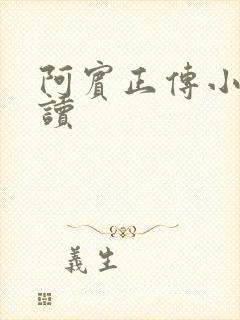 阿賓正傳小
讀
義生